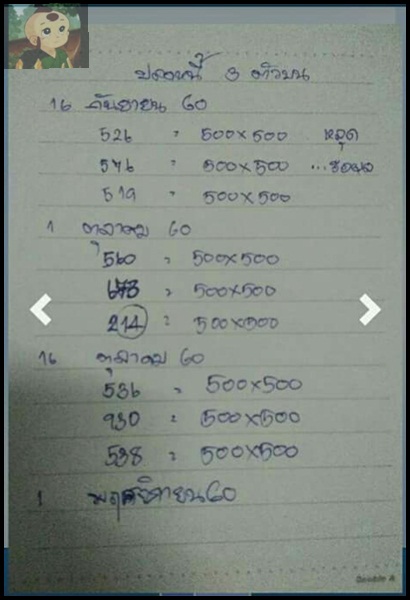 ปลดหนี้ 3 ตัวบน
16 กันยายน 60
526 = 500×500 หลุด
576 = 500×500 ...รอผล
519 = 500×500
1 ตุลาคม 60
560 = 500×500
673 = 500×500
214 = 500×500
16 ตุลาคม 60
536 = 500×500
930 = 500×500
538 = 500×500
1 พฤศจิกายน 60
Double A